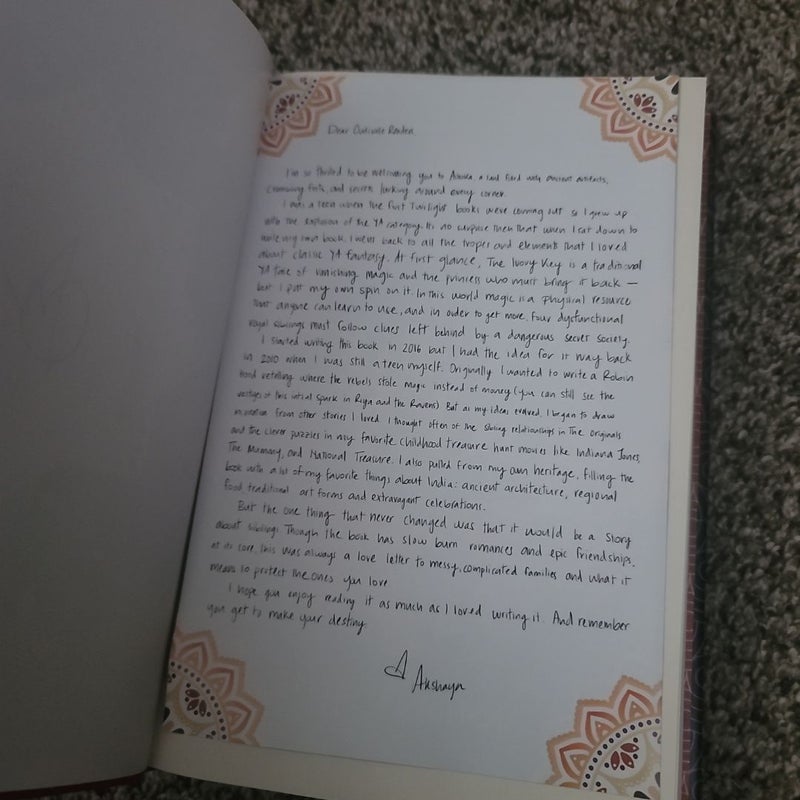 Dear Owlcrate Reader,
I'm so thrilled to be welcoming you to Ashoka, a land filled with ancient artifacts,
crumbling forts, and secrets lurking around every corner.
I was a teen when the first Twilight books were coming out so I grew up
with the explosion of the YA category. It's no surprise then that when I sat down to
write my own book, I went back to all the tropes and elements that I loved
about classic YA fantasy. At first glance, The Ivory Key is a traditional
YA tale of vanishing magic and the princess who must bring it back —
but I put my own spin on it. In this world magic is a physical resource
that anyone can learn to use, and in order to get more, four dysfunctional
royal siblings must follow clues left behind by a dangerous secret society.
I started writing this book in 2016 but I had the idea for it way back
in 2010 when I was still a teen myself. Originally I wanted to write a Robin
Hood retelling where the rebels stole magic instead of money (you can still see the
vestiges of this initial spark in Riya and the Ravens) But as my ideas evolved, I began to draw
inspiration from other stories I loved. I thought often of the sibling relationships in The Originals
and the clever puzzles in my favorite childhood treasure hunt movies like Indiana Jones,
The Mummy, and National Treasure. I also pulled from my own heritage, filling the
book with a lot of my favorite things about India: ancient architecture, regional
food, traditional art forms and extravagant celebrations.
But the one thing that never changed was that it would be a story
about siblings. Though the book has slow burn romances and epic friendships,
at its core, this was always a love letter to messy, complicated families and what it
means to protect the ones you love.
I hope you enjoy reading it as much as I loved writing it. And remember
you get to make your destiny.
Akshaya